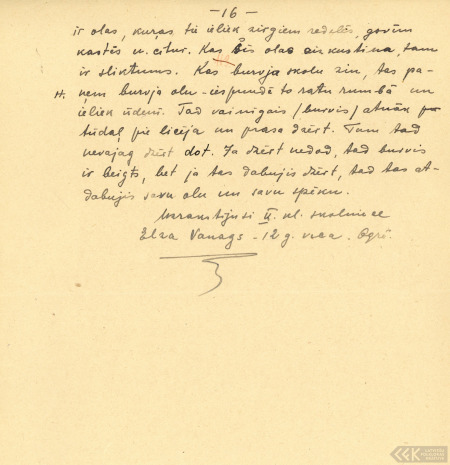 -16-
ir olas, kuŗas tie ieliek zirgiem redelēs, govīm
kastēs u. citur. Kas šīs olas aizkustina, tam
ir sliktums. Kas burvja skolu zin, tas pa-
ņem burvja olu - iespundē to ratu rumbā un
H. ieliek ūdenī. Tad vainīgais /burvis/ atnāk
tūdaļ pie licēja un prasa dzērt. Tam tad
nevajag dzērt dot. Ja dzērt nedod, tad burvis
ir beigts, bet ja tas dabujis dzērt, tad tas at-
dabujis savu olu un savu spēku.
Uzrakstijusi II. kl. skolniece
Elza Vanags - 12 g. veca. Ogrē.